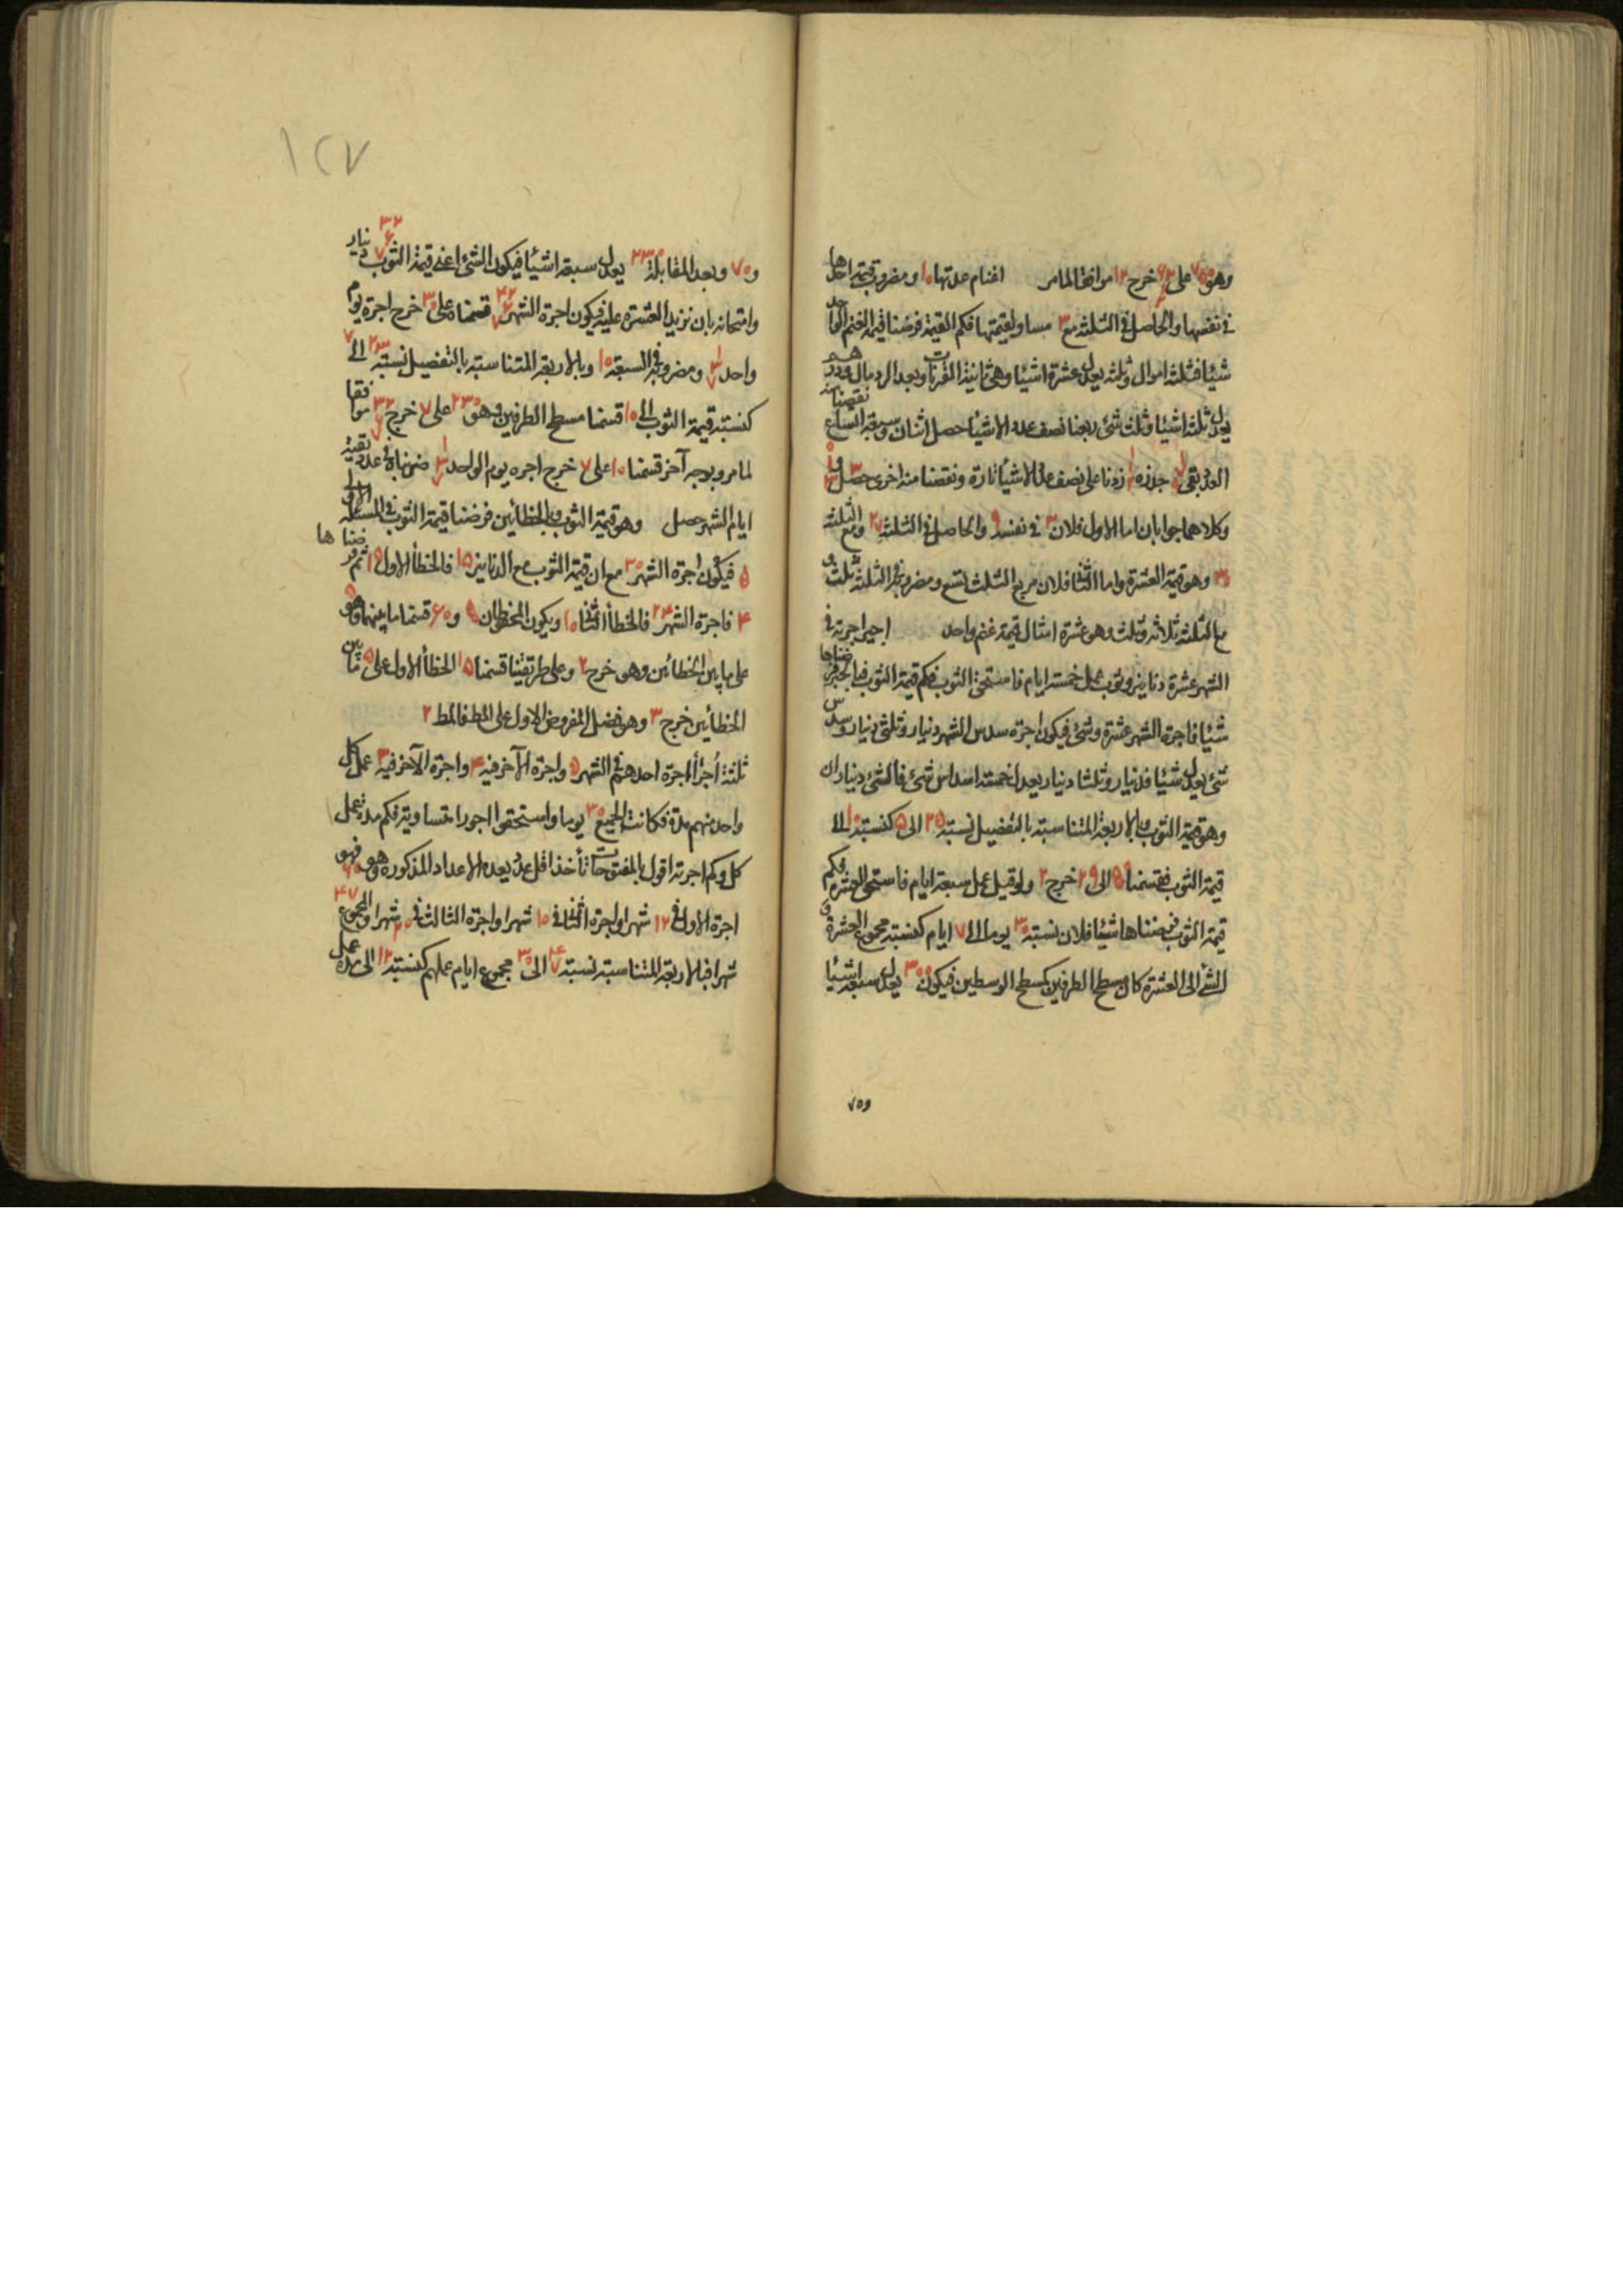 وهو ٧٥ على خرج ١٢ موافقا لما مر اغنام عدتها ١٠ ومضروب قيمة احدها
في نفسها والحاصل في الثلثة مع ٣ مساو لقيمتها فكم القيمة فرضنا قيمة الغنم الواحد
شيئا فثلثة اموال وثلثه يعدل عشرة اشيئا وهى ثانية المقترنات وبعد الرد مال ودرهم
يعدل ثلثة اشيئا وثلث شئ ربعنا نصف عدد الاشيئا حصل اثنان وسبعة اتساع نقصنا منه
العدد بقى جذره زدنا على نصف عدد الاشيئا تارة ونقصنا منه اخرى حصل ٣ و
وكلاهما جوابان اما الاول فلان ٣ في نفسه ٩ والحاصل في الثلثة ٢٧ ومع الثلثة
٣٠ وهو قيمة العشرة واما الثانى فلان مربع الثلث تسع ومضروبه في الثلثة ثلث و
مع الثلثة ثلاثة وثلث وهو عشرة امثال قيمة غنم واحد اجير اجرته في
الشهر عشرة دنانير وثوب عمل خمسة ايام فاستحق الثوب فكم قيمة الثوب فبالجبر فرضناها
شيئا فاجرة الشهر عشرة وشئ فيكون اجرة سدس الشهر دنيار وثلثى دنيار وسدس
شئ يعدل شيئا فدنيار وثلثا دنيار يعدل خمسة اسداس شئ فالشئ ديناران
وهو قيمة الثوب وبالاربعة المتناسبة بالتفضيل نسبة ٢٥ الى ٥ كنسبة ١٠ الى
قيمة الثوب فقسمنا خرج ٢ ولو قيل عمل سبعة ايام فاستحق العشرة فكم
قيمة الثوب فرضناها شيئا فلان نسبة ٣٠ يوما الى ٧ ايام كنسبة مجموع العشرة و
الشئ الى العشرة كان مسطح الطرفين كمسطح الوسطين فيكون ٣٠٠ يعدل سبعة اشيئا
و٧٠
١٢٧
و٧٠ وبعد المقابلة ٢٣٠ يعدل سبعة اشيئا فيكون الشئ اعنى قيمة الثوب ٣٢ ٦ ٧ دنيار
وامتحانه بان نزيد العشرة عليه فيكون اجرة الشهر ٤٢ ٦ ٧ قسمناه على ٣٠ خرج اجرة يوم
واحد ١ ٣ ٧ ومضروبه في السبعة ١٠ وبالاربعة المتناسبة بالتفضيل نسبة ٢٣ الى ٧
كنسبة قيمة الثوب الى ١٠ قسمنا مسطح الطرفين وهو ٢٣٠ على ٧ خرج ٣٢ ٦ ٧ موافقا
لما مر وبوجه آخر قسمنا ١٠ على ٧ خرج اجره يوم الواحد ١ ٣ ٧ ضربناه في عدد بقية
ايام الشهر حصل وهو قيمة الثوب وبالخطائين فرضنا قيمة الثوب في المسئلة الاولى
٥ فيكون اجرة الشهر ٣٠ مع ان قيمة الثوب مع الدنانير ١٥ فالخطأ الاول ١٥ ثم فرضناها
٤ فاجرة الشهر ٢٤ فالخطأ الثانى ١٠ ويكون المحفوظان و ٦٠ قسمنا ما بينهما وهو
على ما بين الخطائين وهو خرج ٢ وعلى طريقتنا قسمنا ١٥ الخطأ الاول على ٥ ما بين
الخطائين خرج ٣ وهو فضل المفروض الاول على المط فالمط ٢
ثلثة اجرأ اجرة احدهم في الشهر ٥ واجرة الآخر فيه ٤ واجرة الآخر فيه ٣ عمل كل
واحد منهم مدة فكانت الجميع ٣٠ يوما واستحقوا اجورا متساوية فكم مدة عمل
كل وكم اجرته اقول بالمفتوحات تأخذ اقل عدد يعده الاعداد المذكوره وهو ٦٠ فهو
اجرة الاول في ١٢ شهرا واجرة الثانى في ١٥ شهرا واجرة الثالث في ٢٠ شهرا والمجموع ٤٧
شهرا فبالاربعة المتناسبة نسبة ٤٧ الى ٣٠ مجموع ايام عملهم كنسبة ١٢ الى مدة عمل